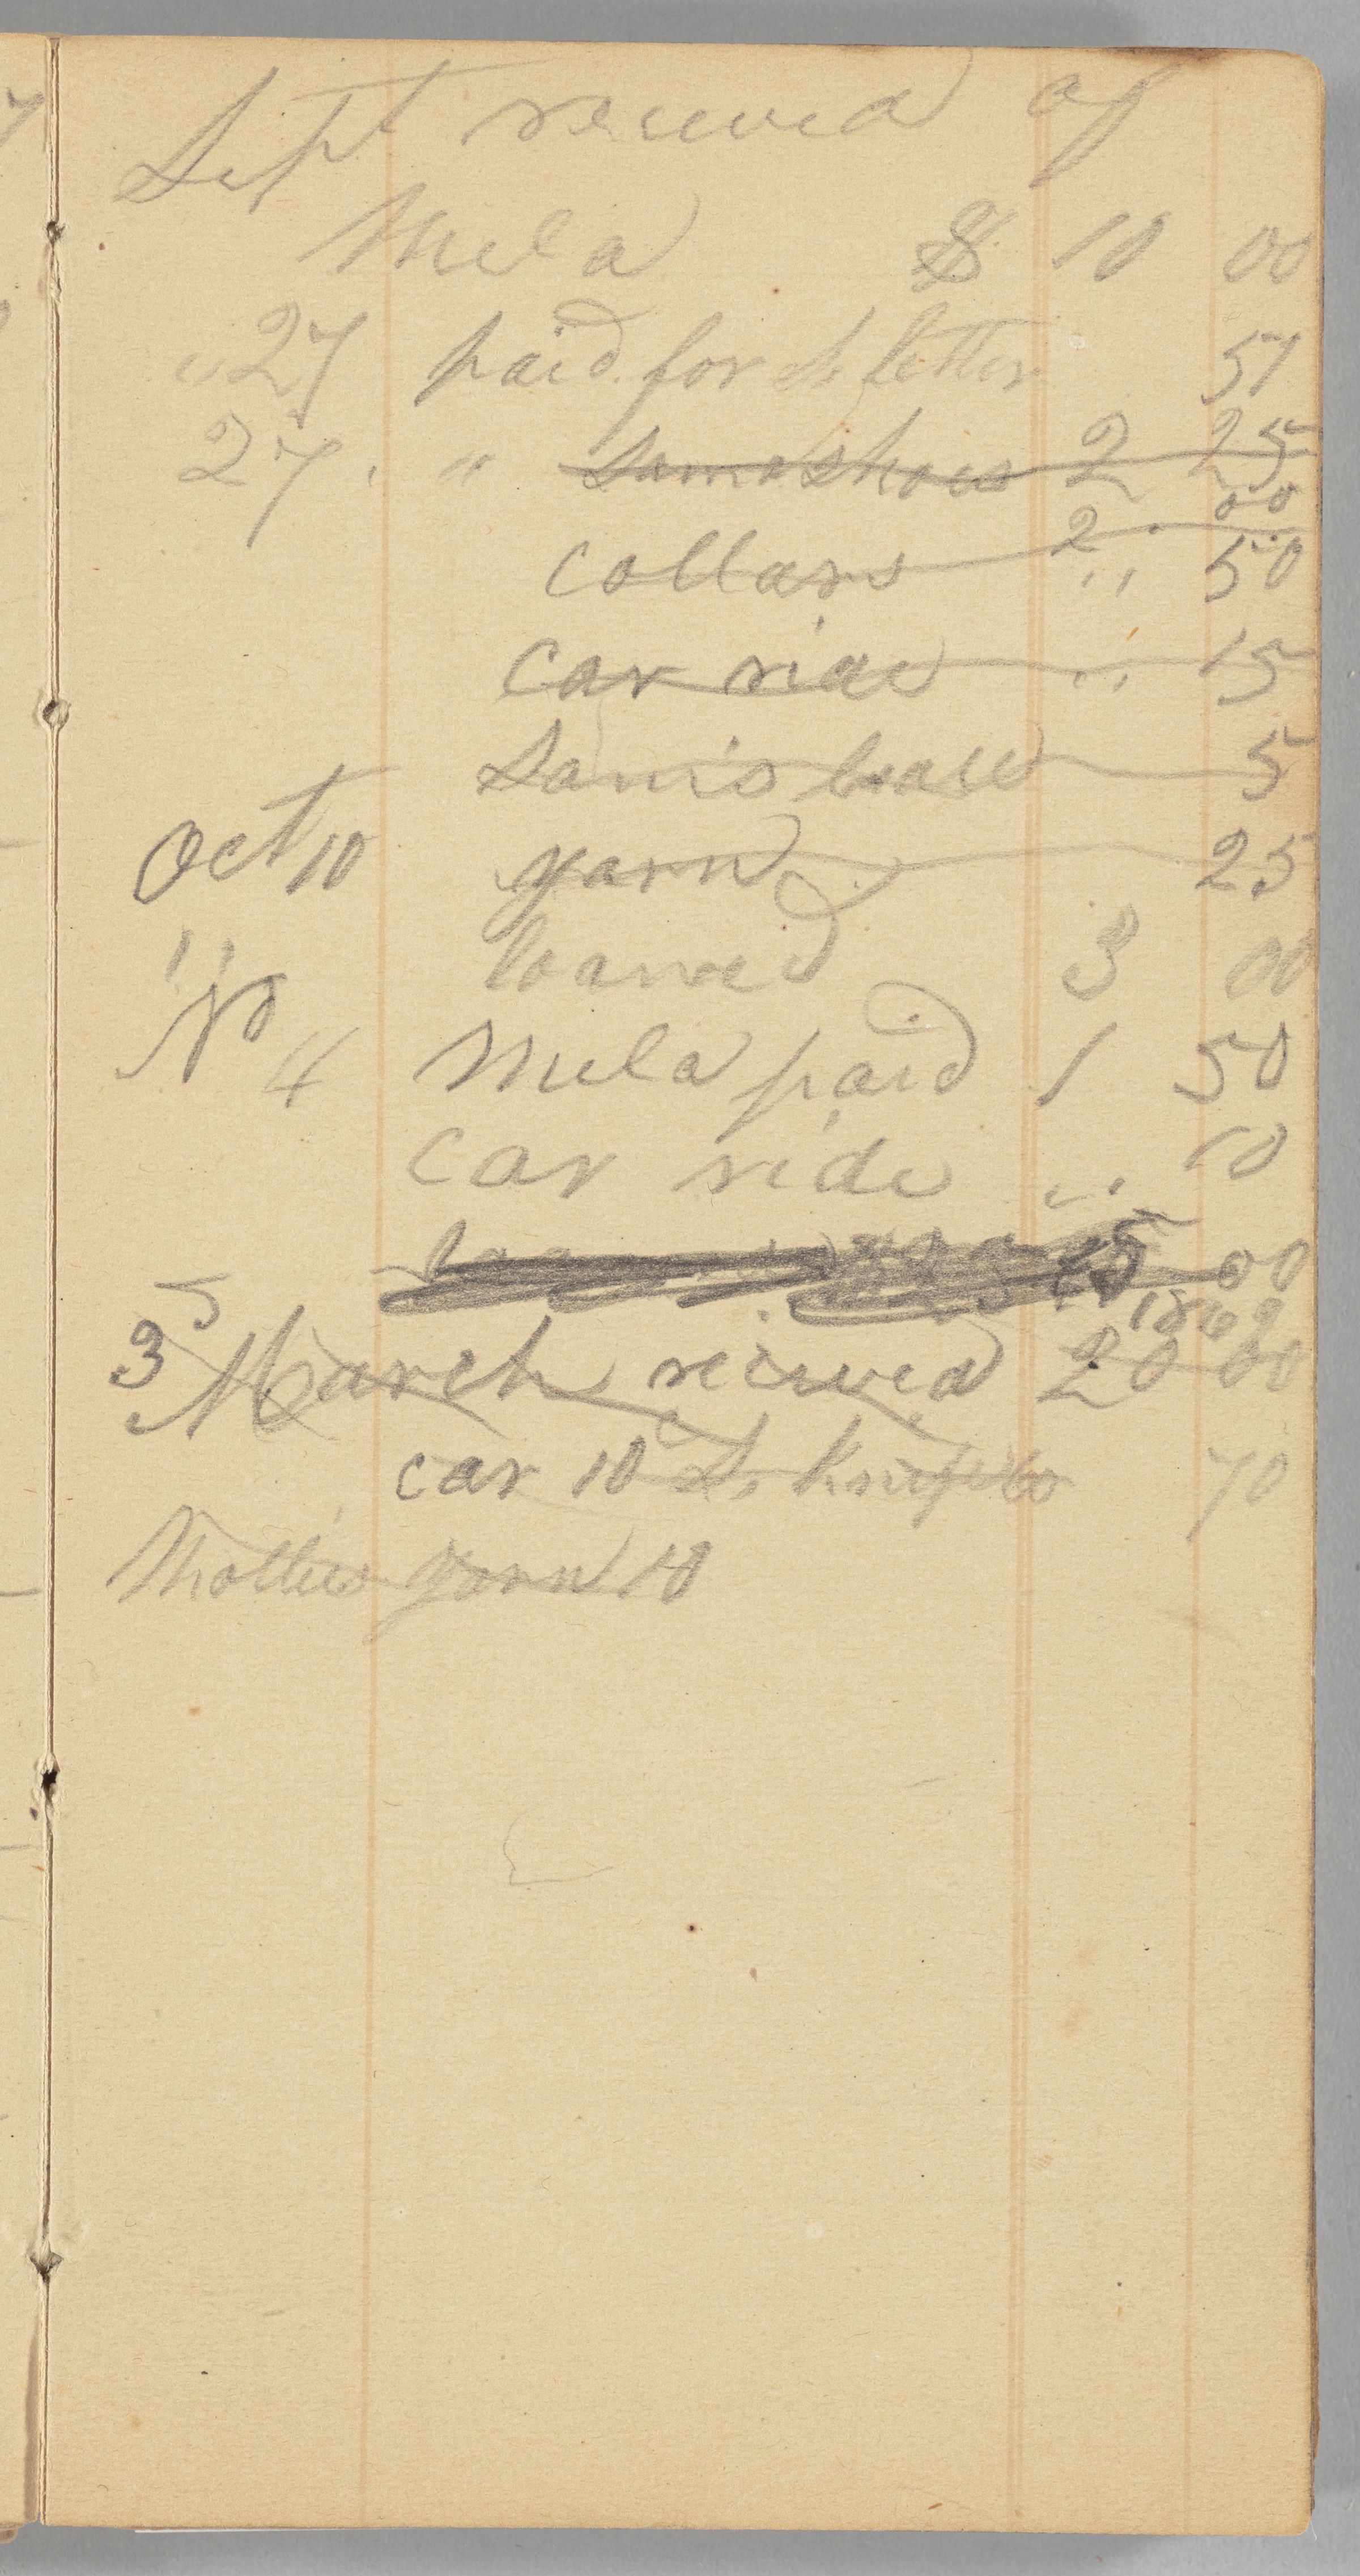 Sept received of
Mela $ 10 00
27 paid for letter 51
27 " Sams shoes 2 25
2 00
collars " 50
car ride " 15
Sam's ball 5
Oct 10 yarn 25
" loaned 3 00
No 4 Mela paid 1 50
car ride " 10
15 00
5 1869
3 March recived 20 00
car 10 S. Knife 60 70
Mollies yarn 10